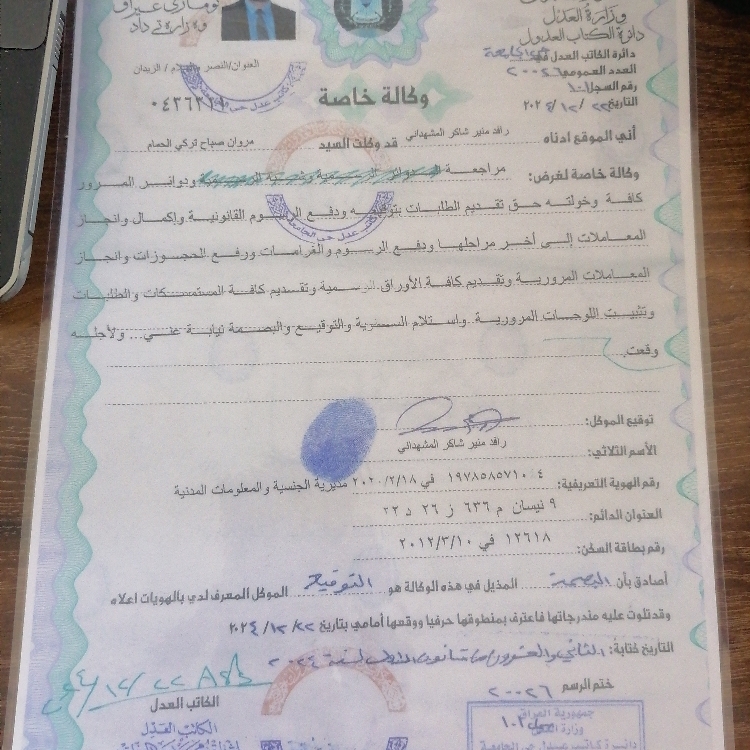 كۆماری عێراق
وزارة العدل
وەزارەتی داد
دائرة الكتاب العدول
دائرة الكاتب العدل
العدد العمومي ٢٠٠٢٦
رقم السجل ١٠١
التاريخ ٢٢ / ١٢ / ٢٠٢٤
العنوان/النصر والسلام / الزيدان
وكالة خاصة
أني الموقع ادناه رافد منير شاكر المشهداني قد وكلت السيد مروان صباح تركي الحمام
وكالة خاصة لغرض: مراجعة ودوائر المرور
كافة وخولته حق تقديم الطلبات ودفع الرسوم القانونية وإكمال وانجاز
المعاملات إلى أخر مراحلها ودفع الرسوم والغرامات ورفع الحجوزات وانجاز
المعاملات المرورية وتقديم كافة الأوراق الرسمية وتقديم كافة المستمسكات والطلبات
وتثبيت اللوحات المرورية واستلام السنوية والتوقيع والبصمة نيابة عني... ولأجله
وقعت.
توقيع الموكل:
الأسم الثلاثي: رافد منير شاكر المشهداني
رقم الهوية التعريفية: ١٩٧٨٥٨٥٧١٠٤ في ٢٠٢٠/٢/١٨ مديرية الجنسية والمعلومات المدنية
العنوان الدائم: ٩ نيسان م ٦٣٦ ز ٢٦ د ٢٢
رقم بطاقة السكن: ١٢٦١٨ في ٢٠١٢/٣/١٠
أصادق بأن البصمة المذيل في هذه الوكالة هو التوقيع الموكل المعرف لدي بالهويات اعلاه
وقد تلوت عليه مندرجاتها فاعترف بمنطوقها حرفيا ووقعها أمامي بتاريخ ٢٠٢٤/١٢/٢٢
التاريخ كتابة: الثاني والعشرون من كانون الاول لسنة ٢٠٢٤
ختم الرسم ٢٠٠٢٦
الكاتب العدل
الكاتب العدل
جمهورية العراق
وزارة العدل
دائرة كاتب عدل حي الجامعة